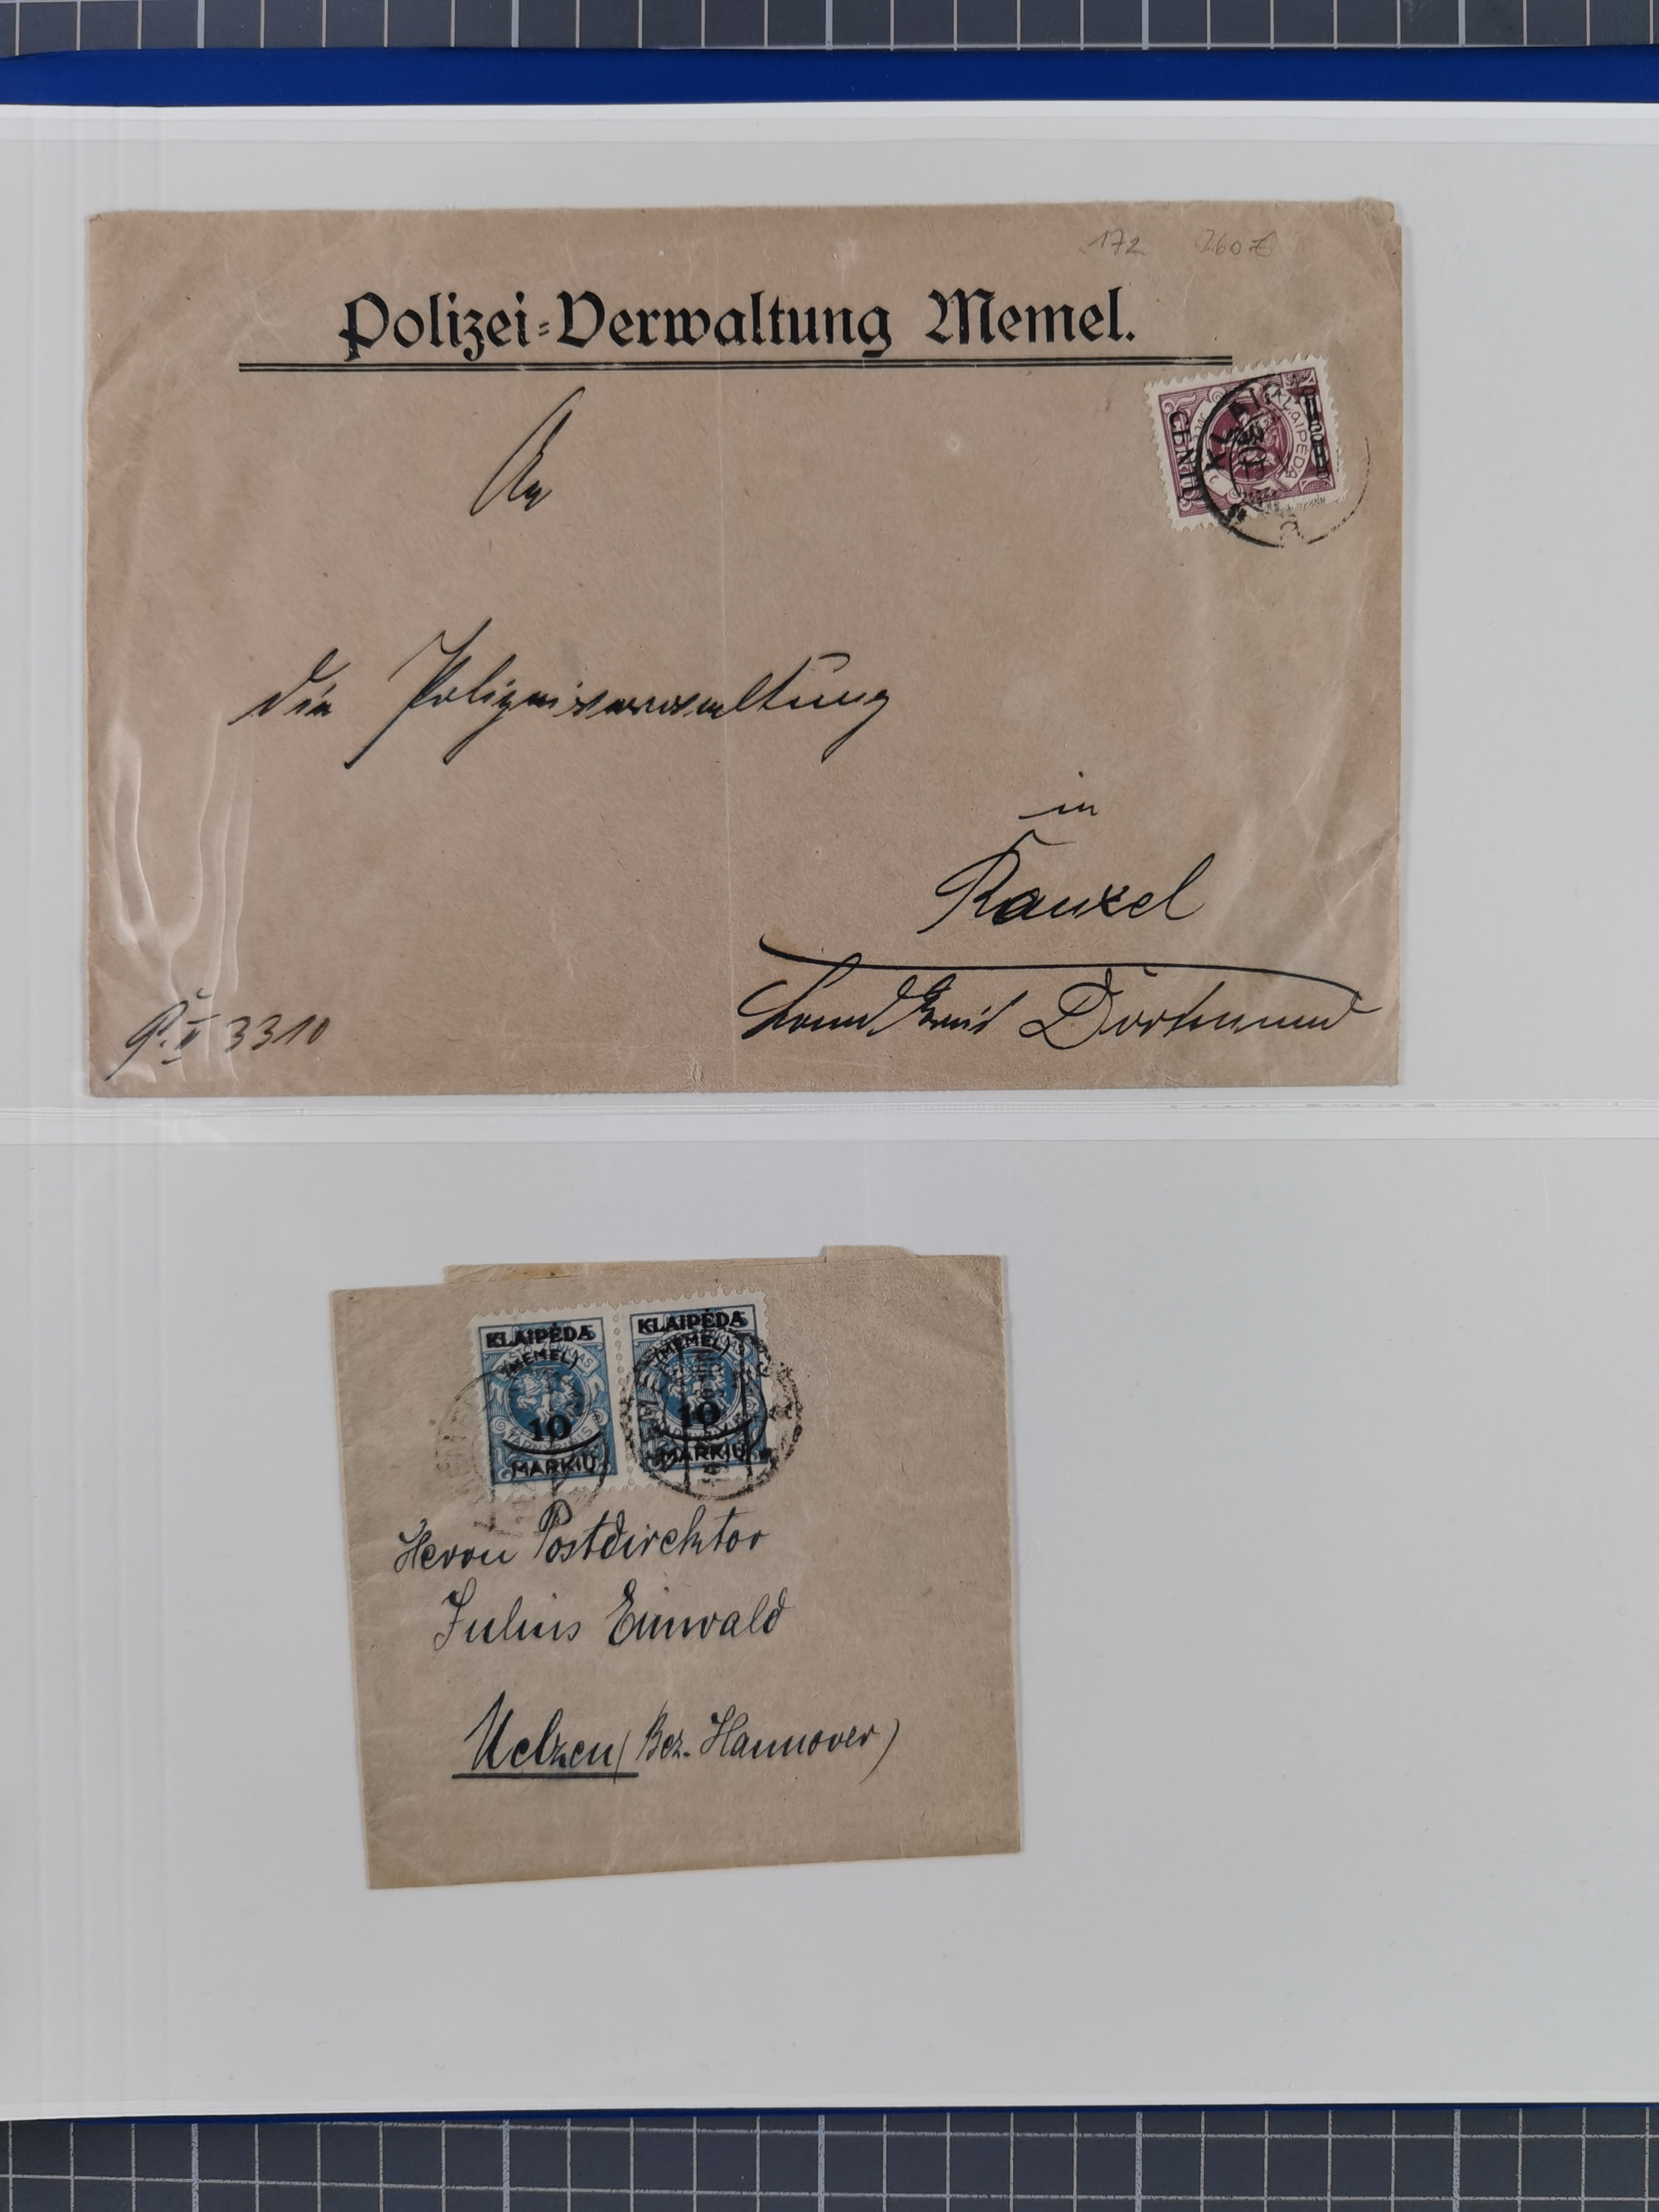 172 260
Polizei=Verwaltung Memel.
KLAIPEDA
CENTŲ
An
die Polizeiverwaltung
in
Rauxel
Landkreis Dortmund
3310
KLAIPĖDA KLAIPĖDA
(MEMEL) (MEMEL)
10 10
MARKIŲ MARKIŲ
Herrn Postdirektor
Julius Einwald
Uelzen (Bez. Hannover)